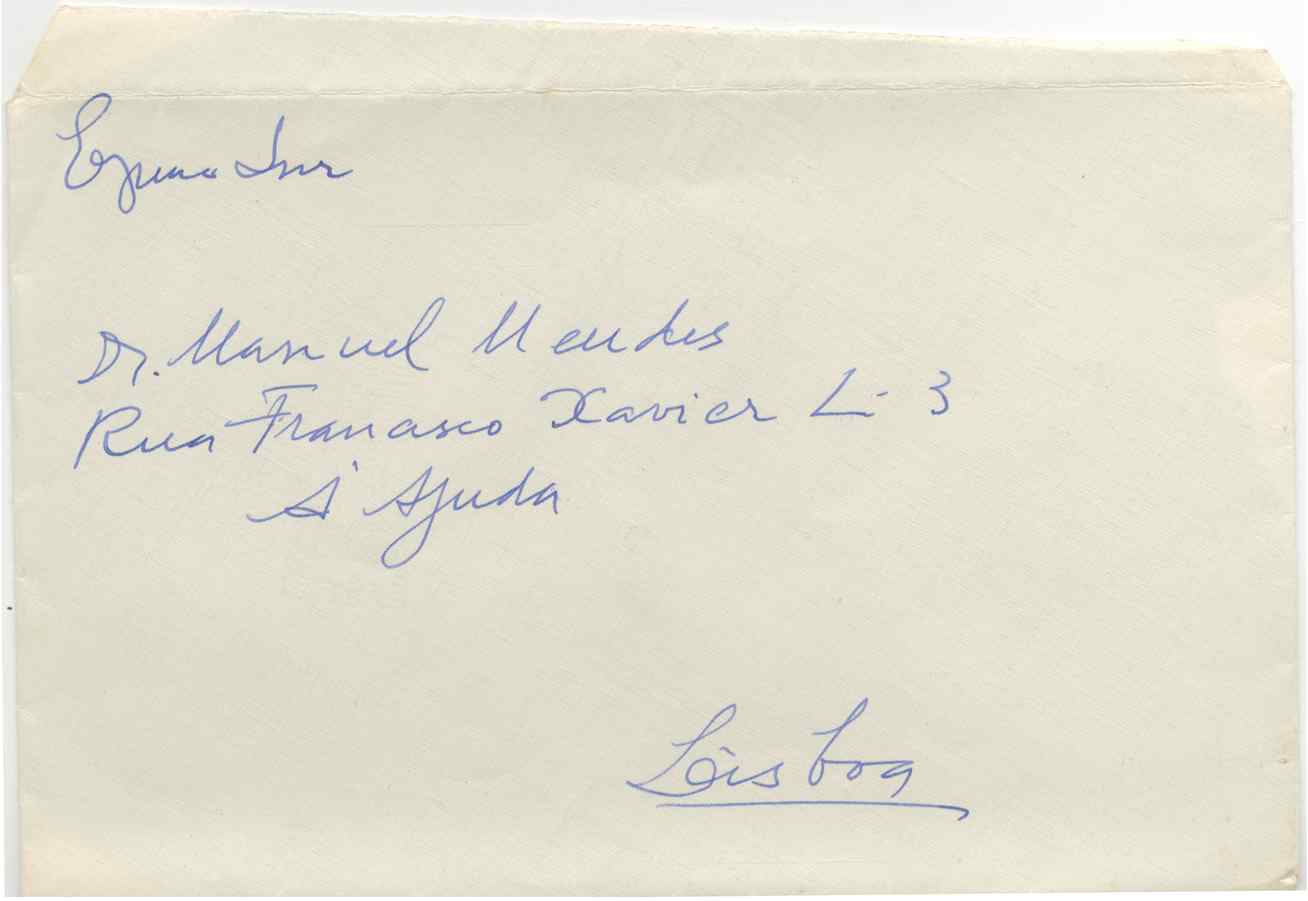 Exmo Snr
Dr. Manuel Mendes
Rua Francisco Xavier L- 3
À Ajuda
Lisboa